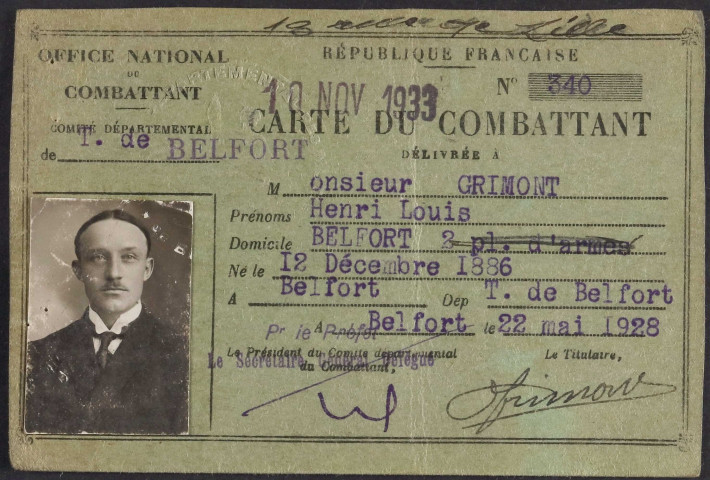 13 rue de Lille
OFFICE NATIONAL
DU
COMBATTANT
COMITÉ DÉPARTEMENTAL
de T. de BELFORT
RÉPUBLIQUE FRANÇAISE
Nº 340
10 NOV 1933
CARTE DU COMBATTANT
DÉLIVRÉE À
Monsieur GRIMONT
Prénoms Henri Louis
Domicile BELFORT 2 pl. d'armes
Né le 12 Décembre 1886
A Belfort Dep T. de Belfort
A Belfort le 22 mai 1928
Pr le Préfet
Le Président du Comité départemental
du Combattant,
Le Secrétaire Général Délégué
Le Titulaire,
Grimont